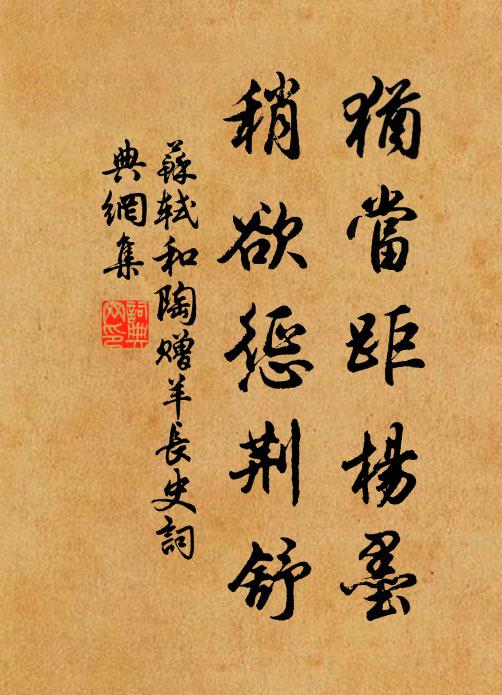 猶當距楊墨
稍欲懲荆舒
蘇軾和陶贈羊長史詞
典網集
詞典
网印